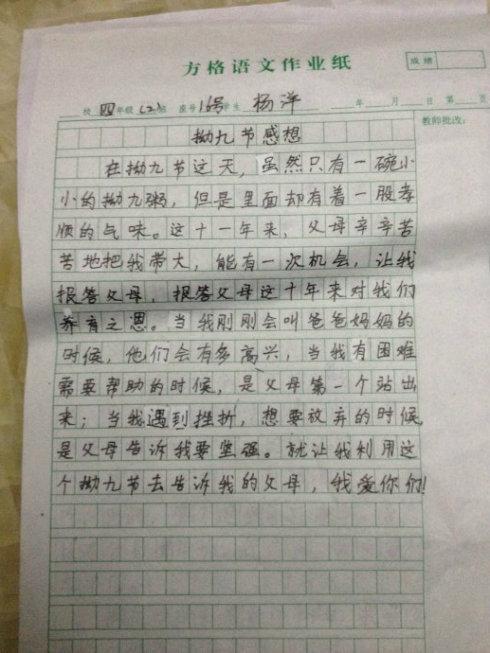 方格语文作业纸
成绩
校 四年级 (2)班 座号16号学生 杨洋 年 月 日 第 页
教师批改:
拗九节感想
在拗九节这天，虽然只有一碗小
小的拗九粥，但是里面却有着一股孝
顺的气味。这十一年来，父母辛辛苦
苦地把我带大，能有一次机会，让我
报答父母，报答父母这十年来对我们
养育之恩。当我刚刚会叫爸爸妈妈的
时候，他们会有多高兴，当我有困难
需要帮助的时候，是父母第一个站出
来；当我遇到挫折，想要放弃的时候，
是父母告诉我要坚强。就让我利用这
个拗九节去告诉我的父母，我爱你们!